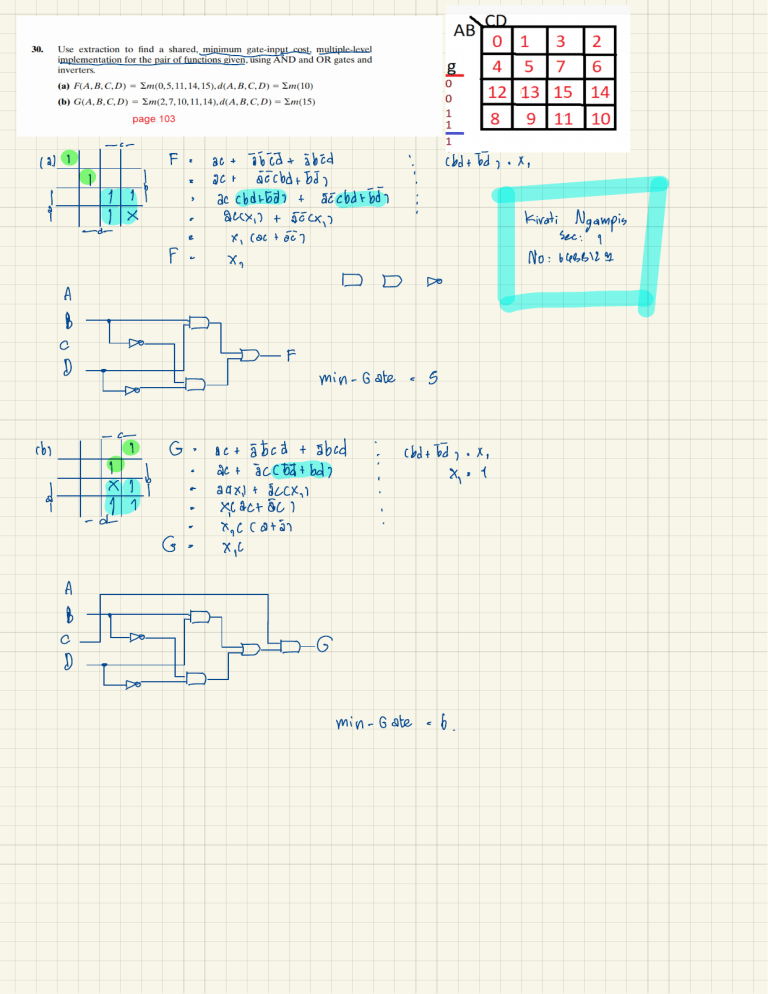 30. Use extraction to find a shared, minimum gate-input cost, multiple-level
implementation for the pair of functions given, using AND and OR gates and
inverters.
(a) F(A, B, C, D) = Σm(0, 5, 11, 14, 15), d(A, B, C, D) = Σm(10)
(b) G(A, B, C, D) = Σm(2, 7, 10, 11, 14), d(A, B, C, D) = Σm(15)
page 103
AB CD
0 1 3 2
4 5 7 6
12 13 15 14
8 9 11 10
g
0
0
1
1
1
(a) 1
1
1 1
1 X
a b c d
F = ac + a̅b̅c̅d̅ + a̅bc̅d
= ac + a̅c̅(bd + b̅d̅)
= ac (bd + b̅d̅) + a̅c̅ (bd + b̅d̅)
= ac(x₁) + a̅c̅(x₁)
= x₁ (ac + a̅c̅)
F = x₁
(bd + b̅d̅) = x₁
Kirati Ngampis
sec: 1
A
B
C
D
F
min-Gate = 5
(b) 1
1
X 1
1 1
a b c d
G = ac + a̅b̅cd̅ + a̅bcd
= ac + a̅c (b̅d̅ + bd)
= ac(x₁) + a̅c(x₁)
= x₁(ac + a̅c)
= x₁c (a + a̅)
G = x₁c
(bd + b̅d̅) = x₁
x₁ = 1
A
B
C
D
G
min-Gate = 6.